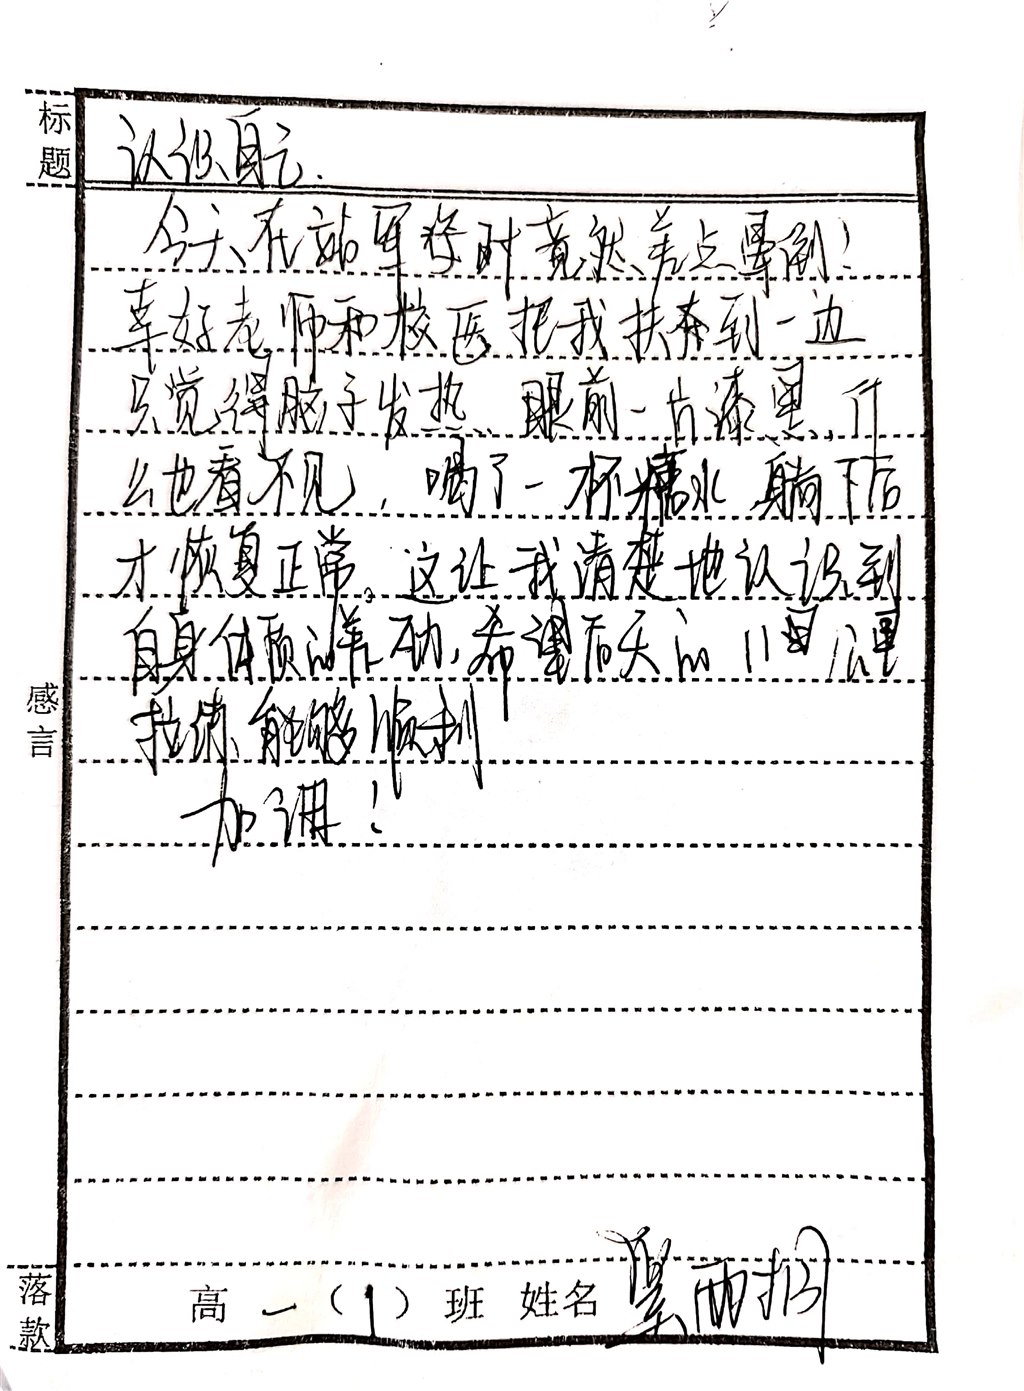 标题
认识自己.
今天在站军姿时竟然差点晕倒！
幸好老师和校医把我扶到一边
只觉得脑子发热、眼前一片漆黑,什
么也看不见，喝了一杯糖水 躺下后
才恢复正常。这让我清楚地认识到
自身体质的差劲，希望后天的11公里
拉练能够顺利
加油！
感言
落款
高一（1）班 姓名